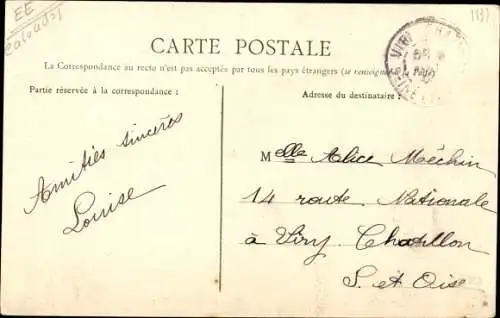 EE
Calvados
1137
CARTE POSTALE
La Correspondance au recto n'est pas acceptée par tous les pays étrangers (se renseigner à la Poste)
Partie réservée à la correspondance :
Adresse du destinataire :
Amitiés sincères
Louise
Melle Alice Méchin
14 route Nationale
à Viry Chatillon
S. et Oise